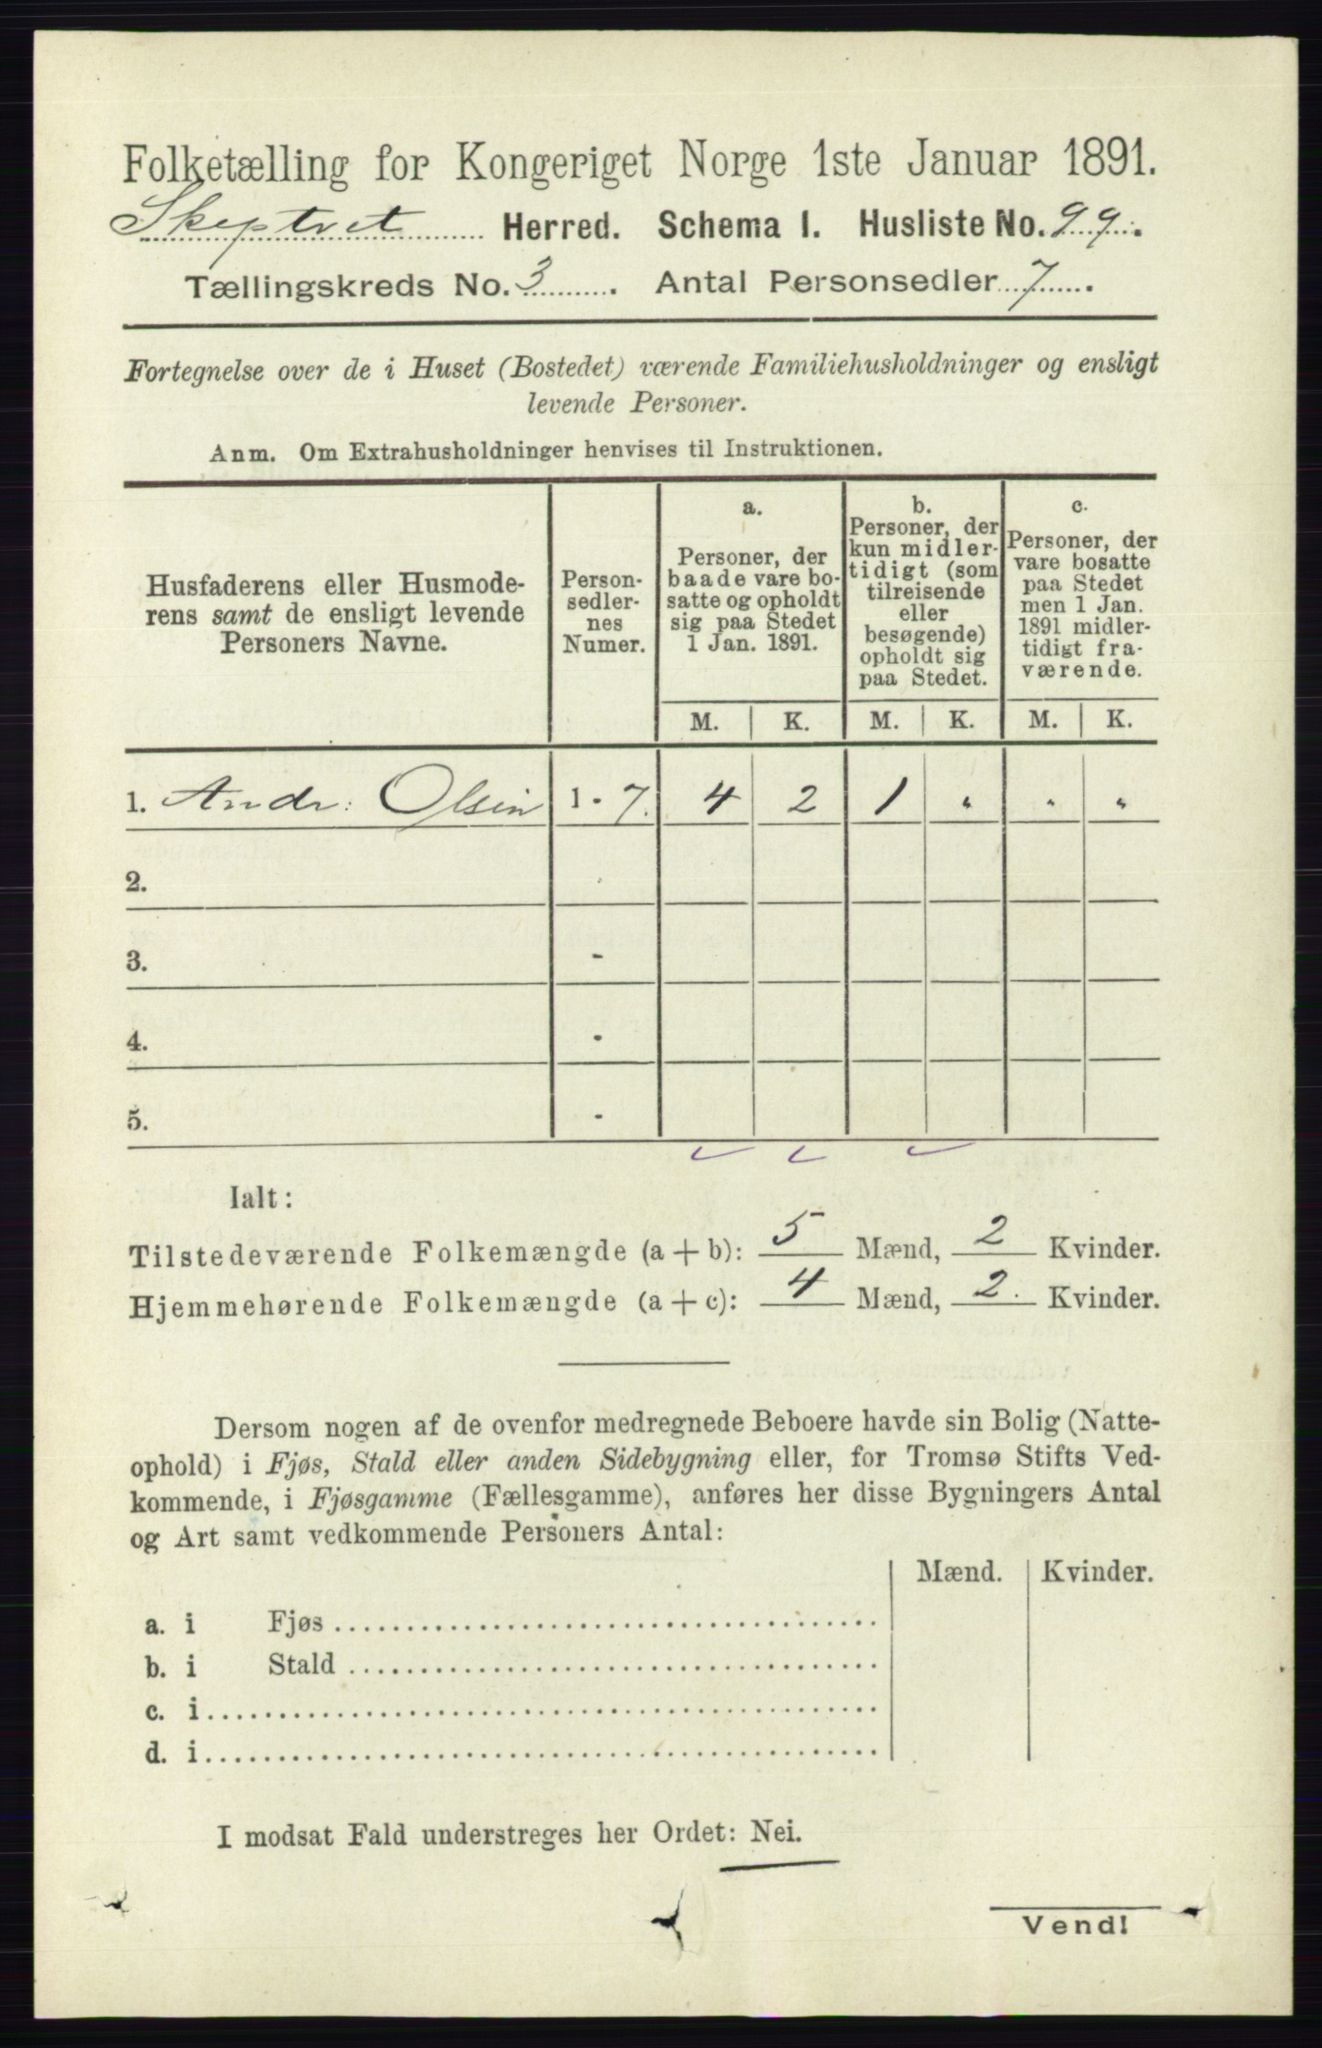 Folketælling for Kongeriget Norge 1ste Januar 1891.
Skeptvet Herred. Schema I. Husliste No. 99.
Tællingskreds No. 3. Antal Personsedler 7.
Fortegnelse over de i Huset (Bostedet) værende Familiehusholdninger og ensligt
levende Personer.
Anm. Om Extrahusholdninger henvises til Instruktionen.
Husfaderens eller Husmode-
rens samt de ensligt levende
Personers Navne.
Person-
sedler-
nes
Numer.
a.
Personer, der
baade vare bo-
satte og opholdt
sig paa Stedet
1 Jan. 1891.
b.
Personer, der
kun midler-
tidigt (som
tilreisende
eller
besøgende)
opholdt sig
paa Stedet.
c.
Personer, der
vare bosatte
paa Stedet
men 1 Jan.
1891 midler-
tidigt fra-
værende.
M. K. M. K. M. K.
1. Andr: Olsen 1 - 7. 4 2 1 " " "
2.
3. -
4. -
5. -
Ialt:
Tilstedeværende Folkemængde (a + b): 5 Mænd, 2 Kvinder.
Hjemmehørende Folkemængde (a + c): 4 Mænd, 2. Kvinder.
Dersom nogen af de ovenfor medregnede Beboere havde sin Bolig (Natte-
ophold) i Fjøs, Stald eller anden Sidebygning eller, for Tromsø Stifts Ved-
kommende, i Fjøsgamme (Fællesgamme), anføres her disse Bygningers Antal
og Art samt vedkommende Personers Antal:
Mænd. Kvinder.
a. i Fjøs
b. i Stald
c. i
d. i
I modsat Fald understreges her Ordet: Nei.
Vend!